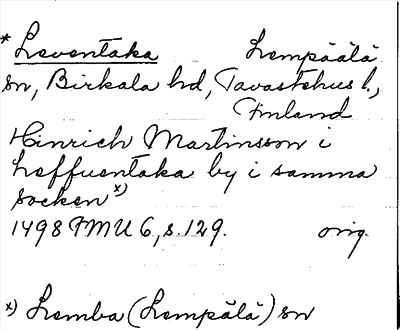 * Leventaka Lempäälä
sn, Birkala hd, Tavastehus l.,
Finland
Hinrich Martinsson i
leffuentaka by i samma
socken x)
1498 FMU 6, s. 129. orig.
x) Lemba (Lempälä) sn